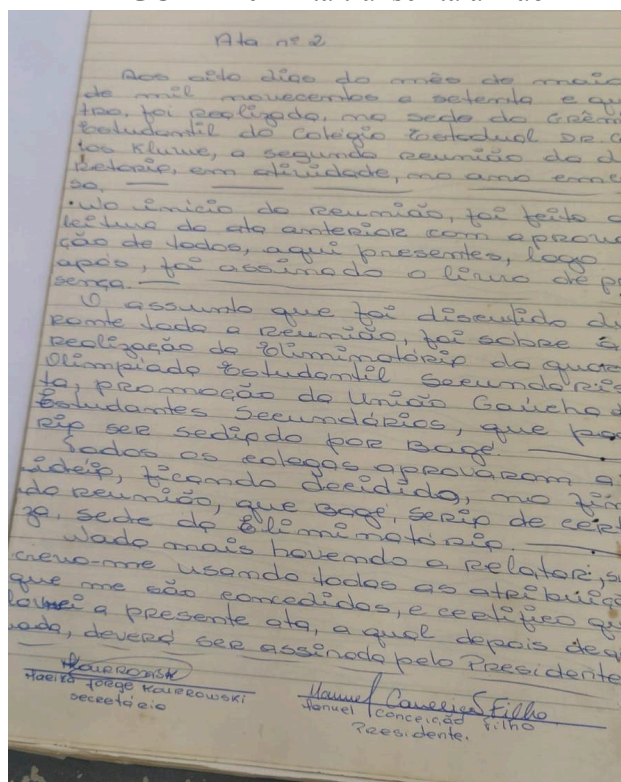 Ata nº 2
Aos oito dias do mês de maio
de mil novecentos e setenta e qua
tro, foi realizada, na sede do Grêm
Estudantil do Colégio Estadual DR. C
los Kluwe, a segunda reunião da di
retoria, em atividade, no ano em
so.
No início da reunião, foi feito a
leitura da ata anterior com aprova
ção de todos, aqui presentes, logo
após, foi assinado o livro de pr
sença.
O assunto que foi discutido du
rante toda a reunião, foi sobre a
realização da Eliminatória da quar
Olimpíada Estudantil Secundaris
ta, promoção da União Gaúcha d
Estudantes Secundários, que po
ria ser sediada por Bagé.
Todos os colegas aprovaram a
idéia, ficando decidido, no fim
da reunião, que Bagé, seria de cert
za, sede da Eliminatória.
Nada mais havendo a relatar, su
crevo-me usando todas as atribuiçõ
que me são concedidas, e certifico qu
lavrei a presente ata, a qual depois de a
vada, deverá ser assinada pelo Presidente
Kourrowski
Jorge Kourrowski
secretário
Manuel Conceição Filho
Manuel Conceição Filho
Presidente.